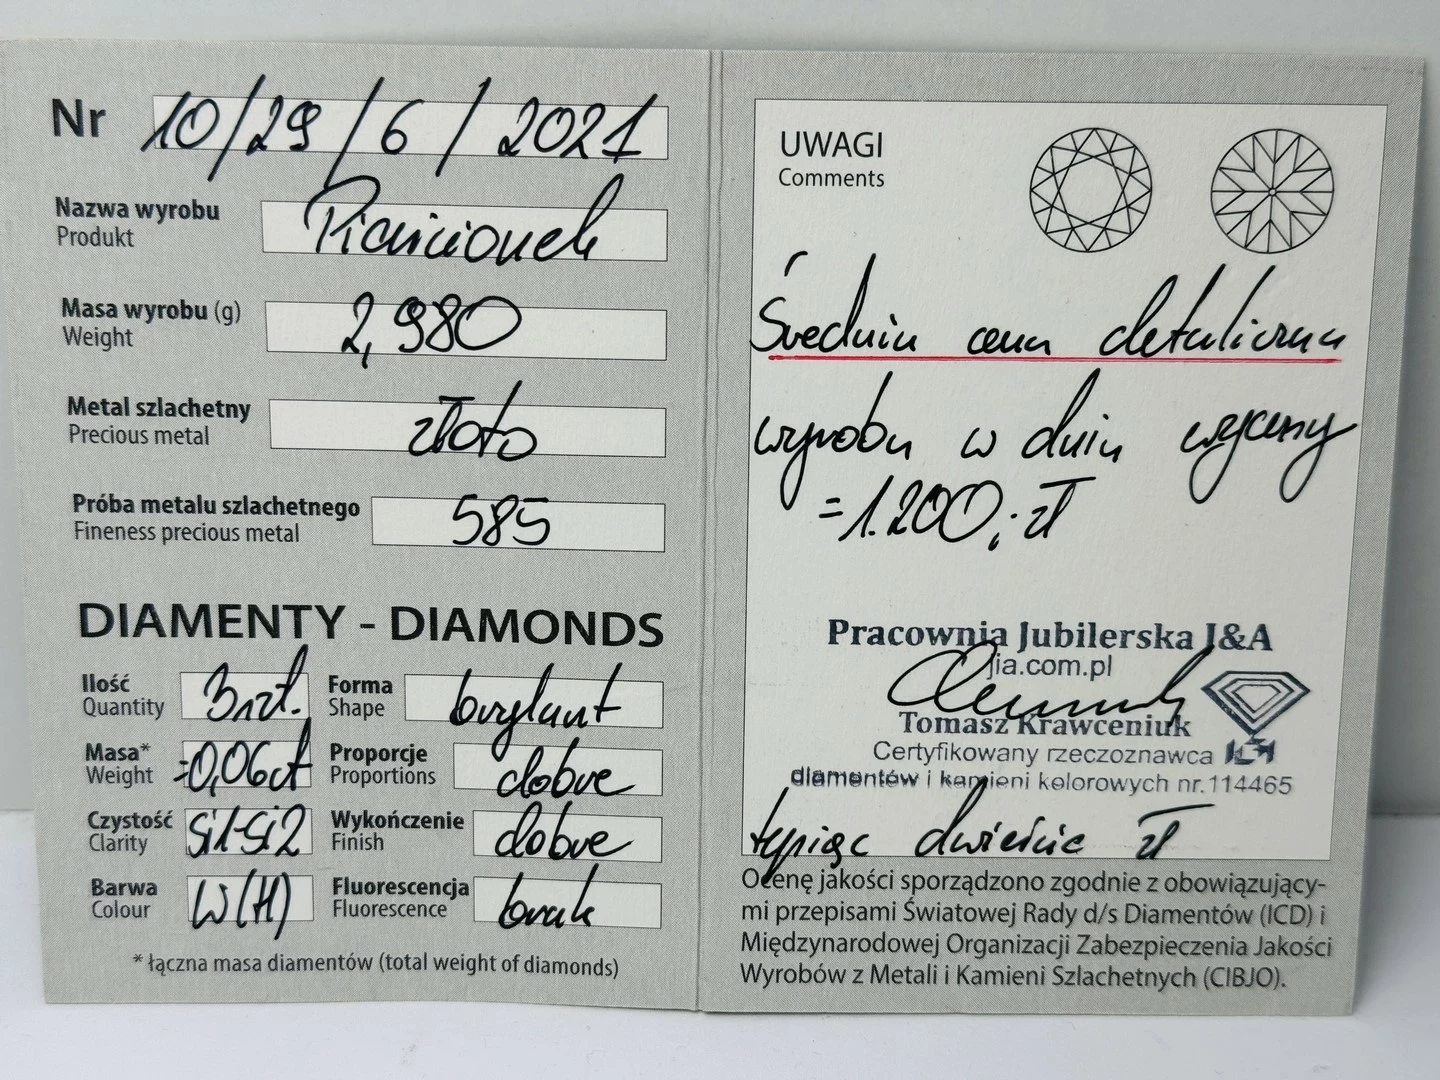 Nr 10/29/6/2021
Nazwa wyrobu
Produkt
Pierścionek
Masa wyrobu (g)
Weight
2,980
Metal szlachetny
Precious metal
złoto
Próba metalu szlachetnego
Fineness precious metal
585
DIAMENTY - DIAMONDS
Ilość
Quantity
3szt.
Forma
Shape
brylant
Masa*
Weight
=0,06ct
Proporcje
Proportions
dobre
Czystość
Clarity
Si1-Si2
Wykończenie
Finish
dobre
Barwa
Colour
W(H)
Fluorescencja
Fluorescence
brak
* łączna masa diamentów (total weight of diamonds)
UWAGI
Comments
Średnia cena detaliczna
wyrobu w dniu wyceny
=1.200,- zł
Pracownia Jubilerska J&A
jia.com.pl
Tomasz Krawceniuk
Certyfikowany rzeczoznawca
diamentów i kamieni kolorowych nr.114465
tysiąc dwieście zł
Ocenę jakości sporządzono zgodnie z obowiązujący-
mi przepisami Światowej Rady d/s Diamentów (ICD) i
Międzynarodowej Organizacji Zabezpieczenia Jakości
Wyrobów z Metali i Kamieni Szlachetnych (CIBJO).